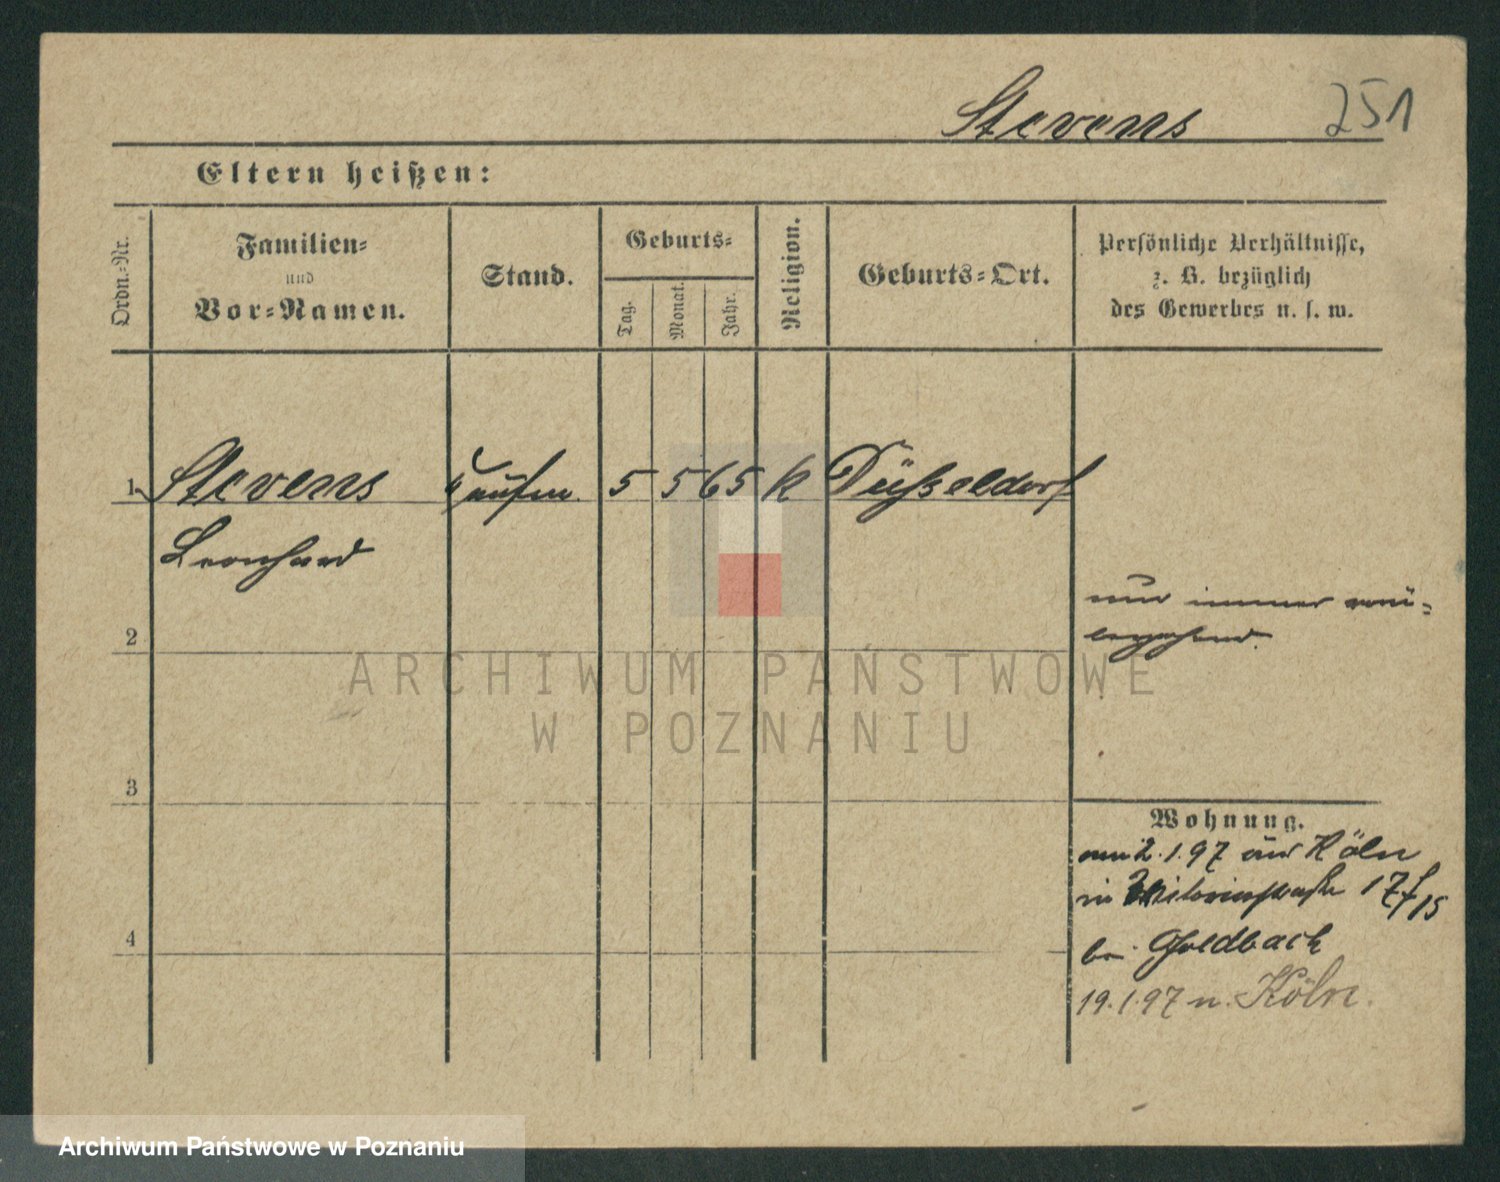 Stevens 251
Eltern heißen:
Ordn.-Nr.
Familien-
und
Vor-Namen.
Stand.
Geburts-
Tag.
Monat.
Jahr.
Religion.
Geburts-Ort.
Persönliche Verhältnisse,
z. B. bezüglich
des Gewerbes u. s. w.
1. Stevens Kaufm. 5 5 65 k Düßeldorf
Leonhard
nur immer vorü-
bergehend.
2
3
4
Wohnung.
am 2.1.97 aus Köln
in 17/15
bei Goldbach
19.1.97 n. Köln.
ARCHIWUM PAŃSTWOWE
W POZNANIU
Archiwum Państwowe w Poznaniu